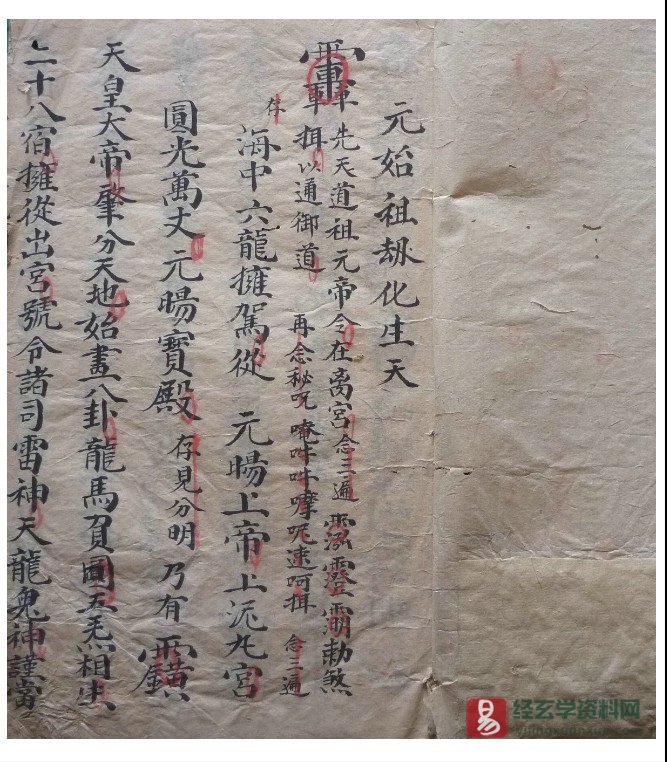 元始祖刼化生天
先天道祖元帝令在离宮念三遍 勅煞
揖以通御道 再念秘咒唵吽吽 呢速呵揖 念三遍
存
海中六龍擁駕從 元暘上帝上泥丸宮
圓光萬丈元暘寶殿存見分明乃有
天皇大帝肇分天地始畫八卦龍馬負圖五炁相生
二十八宿擁從出宮號令諸司雷神天龍鬼神謹當
易 经玄学资料网